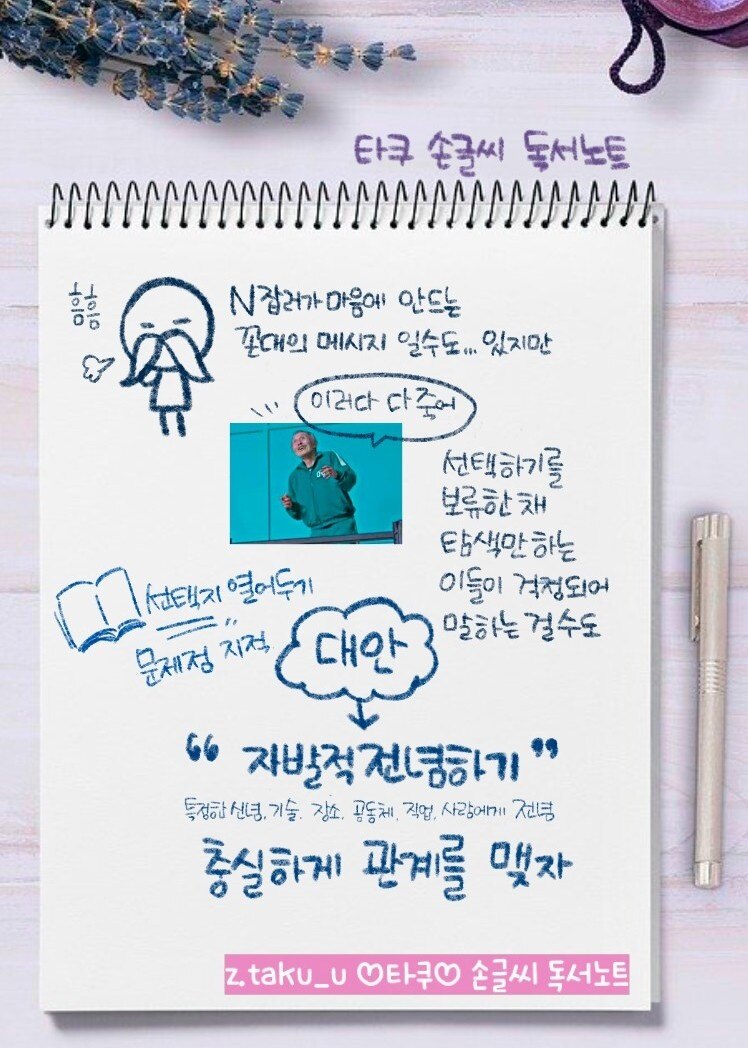 타쿠 손글씨 독서노트
흠흠
N잡러가 마음에 안드는
꼰대의 메시지 일수도... 있지만
이러다 다 죽어
선택하기를
보류한 채
탐색만 하는
이들이 걱정되어
말하는 걸수도
선택지 열어두기
문제점 지적
대안
“자발적 전념하기”
특정한 신념, 기술, 장소, 공동체, 직업, 사람에게 전념
충실하게 관계를 맺자
z.taku_u ♡타쿠♡ 손글씨 독서노트